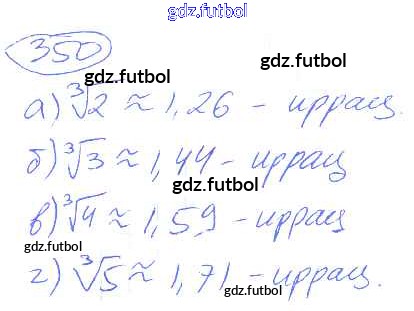 gdz.futbol
350
gdz.futbol
gdz.futbol
а) ∛2 ≈ 1,26 - иррац.
б) ∛3 ≈ 1,44 - иррац
gdz.futbol
в) ∛4 ≈ 1,59 - иррац
gdz.futbol
г) ∛5 ≈ 1,71 - иррац.
gdz.futbol